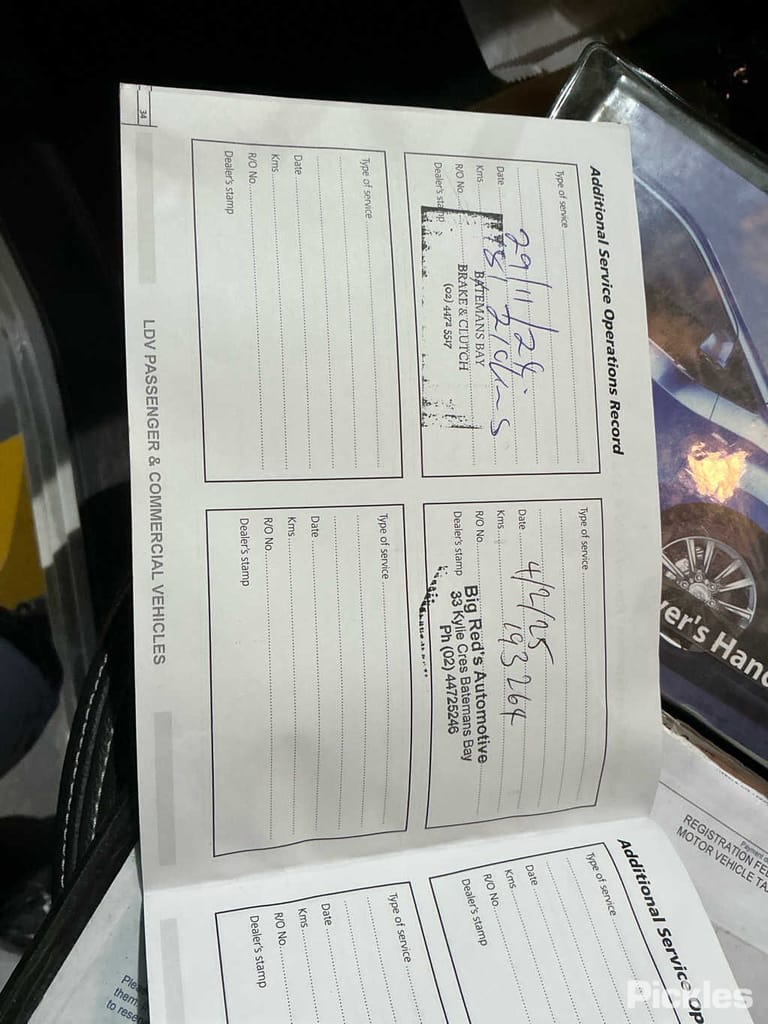 Additional Service Operations Record
Type of service
Date 29/11/24
Kms
R/O No.
Dealer's stamp
BATEMANS BAY
BRAKE & CLUTCH
(02) 4472 5517
Type of service
Date 4/2/25
Kms 193264
R/O No.
Dealer's stamp
Big Red's Automotive
33 Kylie Cres Batemans Bay
Ph (02) 44725246
Type of service
Date
Kms
R/O No.
Dealer's stamp
Type of service
Date
Kms
R/O No.
Dealer's stamp
34
LDV PASSENGER & COMMERCIAL VEHICLES
Additional Service Op
Type of service
Date
Kms
R/O No.
Dealer's stamp
Type of service
Date
Kms
R/O No.
Dealer's stamp
ver's Hand
REGISTRATION FE
MOTOR VEHICLE TA
Plea
them
to rese
Pickles